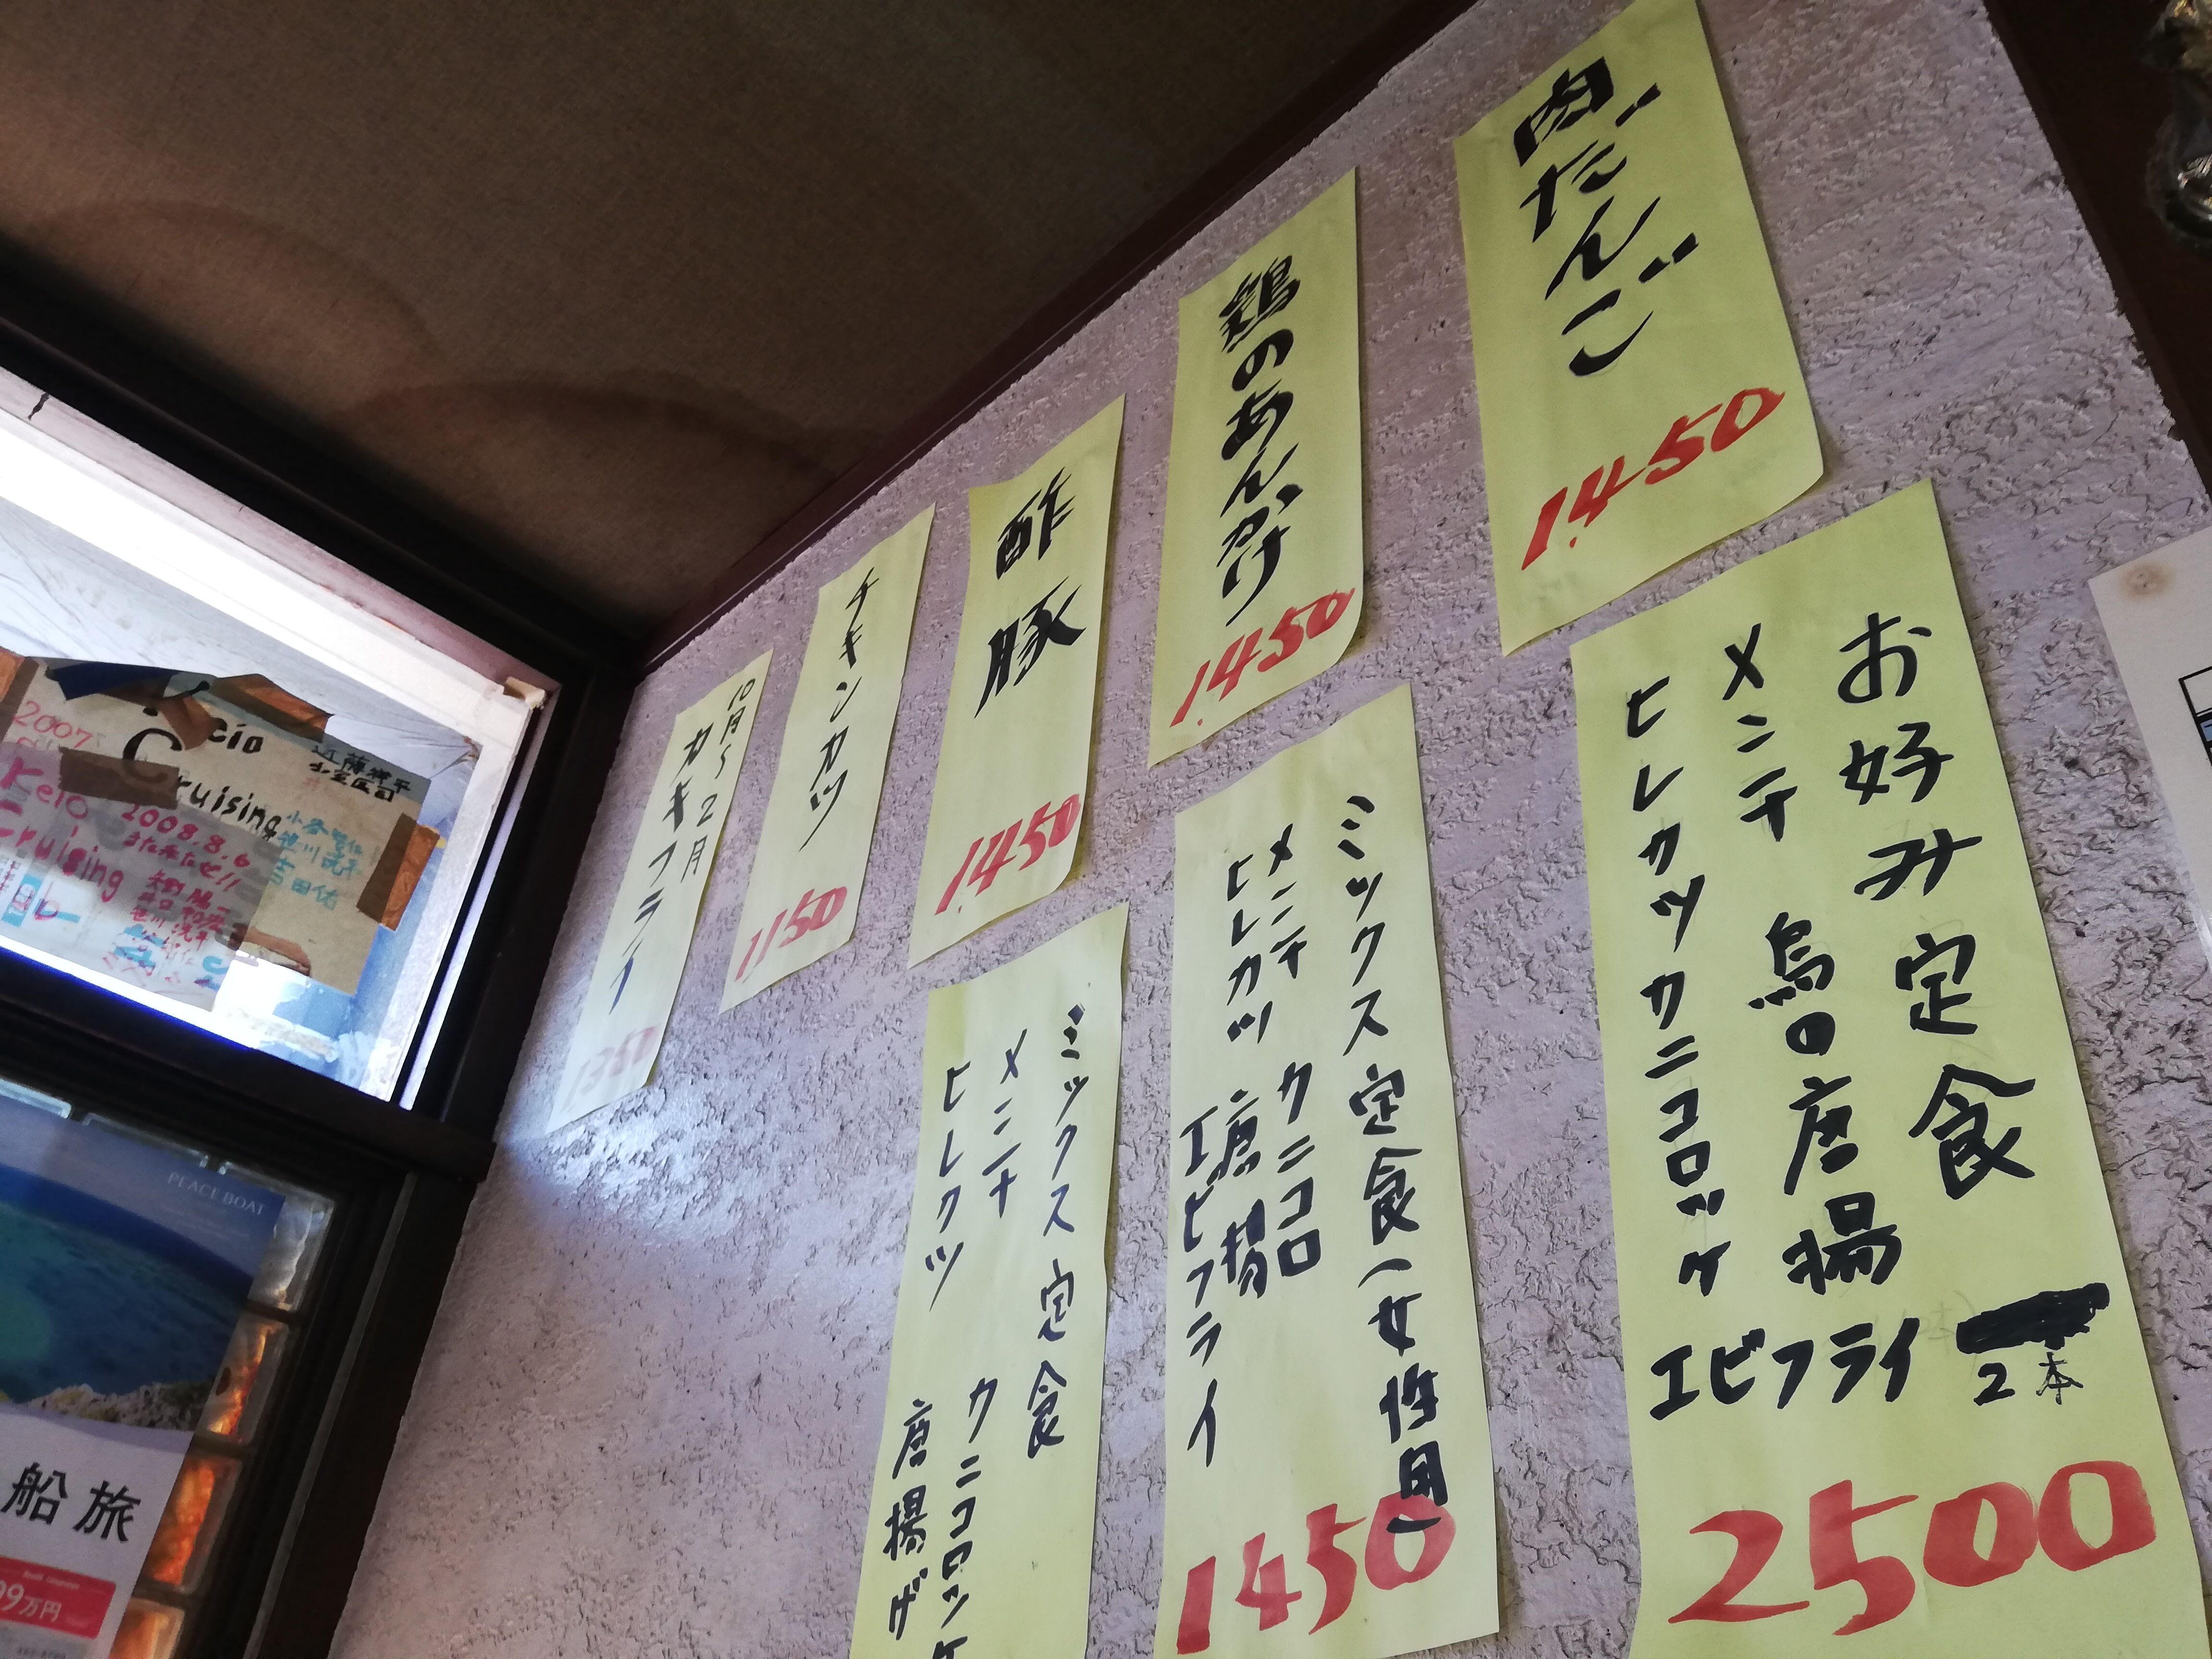 肉だんご
1450
鶏のあんかけ
1450
酢豚
1450
チキンカツ
1150
10月〜2月
カキフライ
1350
お好み定食
メンチ 鳥の唐揚
ヒレカツ カニコロッケ
エビフライ 2本
2500
ミックス定食(女性用)
メンチ カニコロ
ヒレカツ 唐揚
エビフライ
1450
ミックス定食
メンチ カニコロッケ
ヒレカツ 唐揚げ
Keio
Cruising
2007
Keio
Cruising
2008.8.6
また来たぜ!!
PEACE BOAT
船旅
99万円